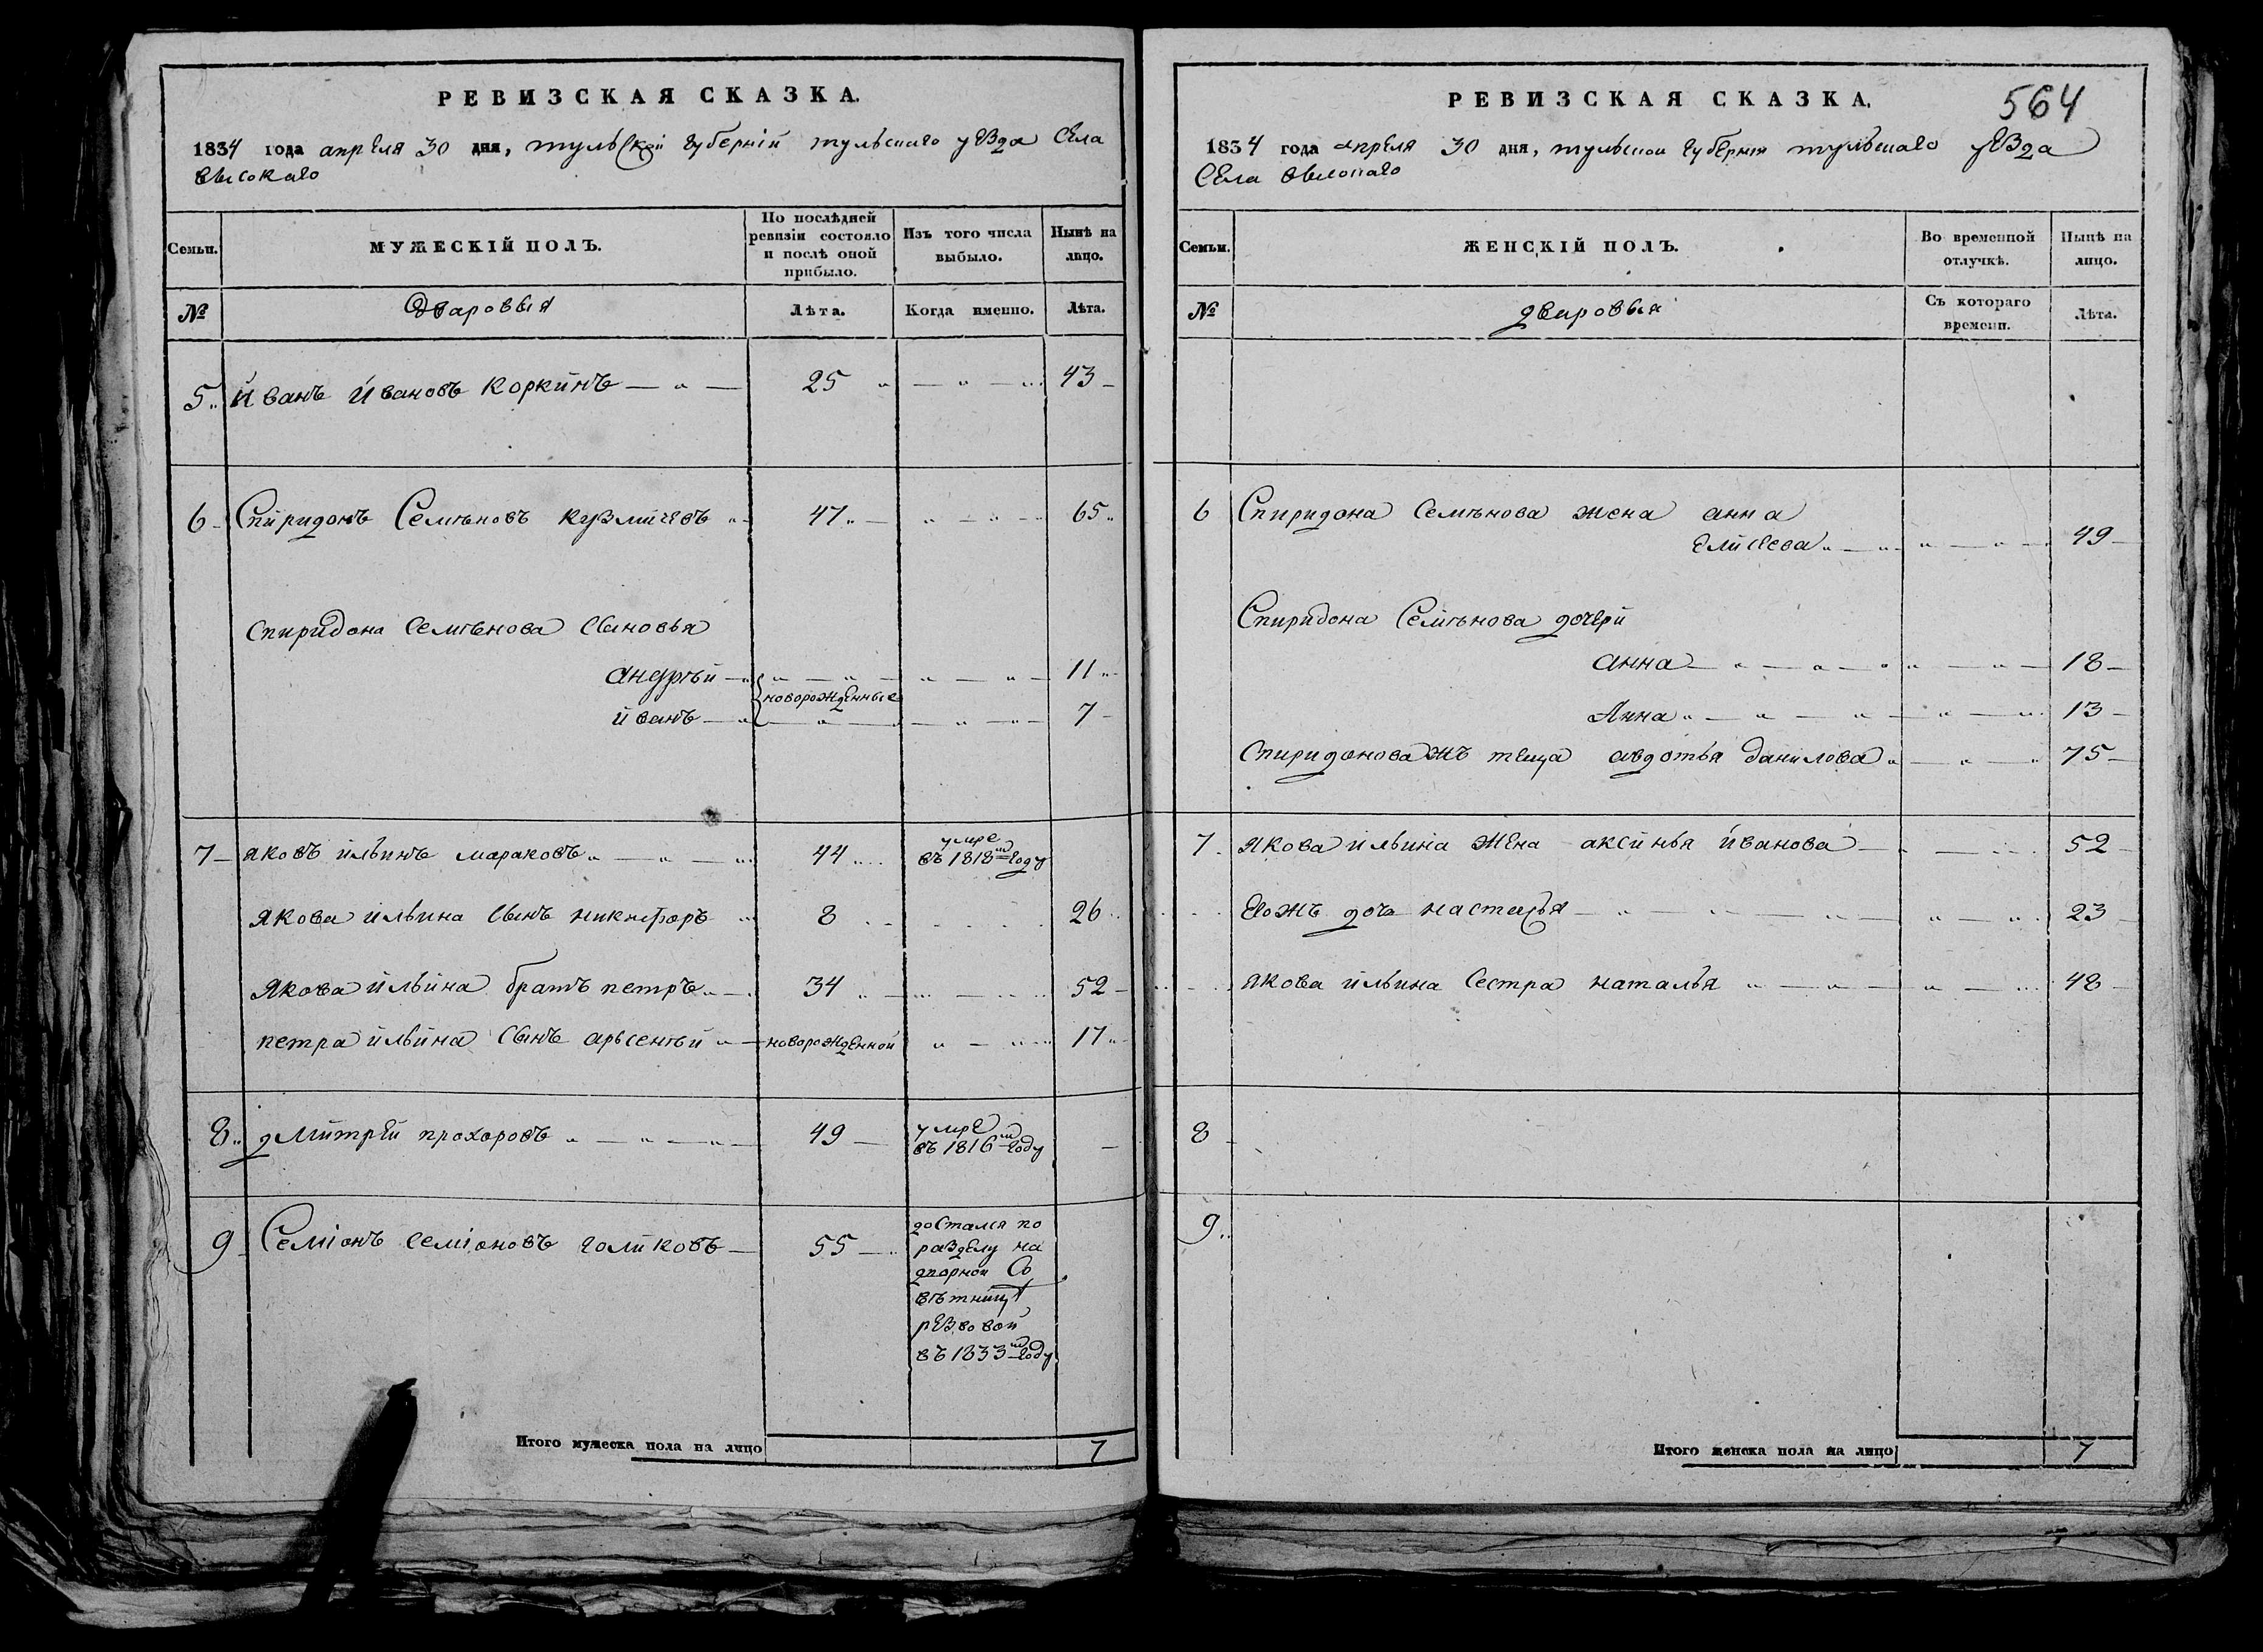 РЕВИЗСКАЯ СКАЗКА.
1834 года апреля 30 дня, тульской губерніи тульскаго уезда села
высокаго
Семьи. МУЖЕСКІЙ ПОЛЪ. По послѣдней ревизіи состояло и послѣ оной прибыло. Изъ того числа выбыло. Нынѣ на лицо.
№ Дваровыя Лѣта. Когда именно. Лѣта.
5 иванъ ивановъ коркинъ 25 43
6 Спиридонъ Семѣновъ кузмичевъ 47 65
спиридона Семѣнова сыновья
андрѣй 11
новорожденные
иванъ 7
7 яковъ ильинъ мараковъ 44 умре въ 1818м году
якова ильина сынъ никифоръ 8 26
якова ильина братъ петръ 34 52
петра ильина сынъ арьсентьй новорожденной 17
8 дмитрей прохоровъ 49 умре въ 1816м году
9 Семіонъ семіоновъ голиковъ 55 достался по
разделу на
дворной Со
вѣтницѣ
резвовой
въ 1833м году
Итого мужеска пола на лицо 7
РЕВИЗСКАЯ СКАЗКА.
564
1834 года апреля 30 дня, тульской губерніи тульскаго уезда
Села высокаго
Семьи. ЖЕНСКІЙ ПОЛЪ. Во временной отлучкѣ. Нынѣ на лицо.
№ дваровыя Съ котораго времени. Лѣта.
6 Спиридона Семѣнова жена анна
елисеева 49
Спиридона Семѣнова дочери
анна 18
Анна 13
Спиридонова жъ теща авдотья данилова 75
7 якова ильина жена аксинья иванова 52
его жъ дочь настасья 23
якова ильина сестра наталья 48
8
9
Итого женска пола на лицо 7